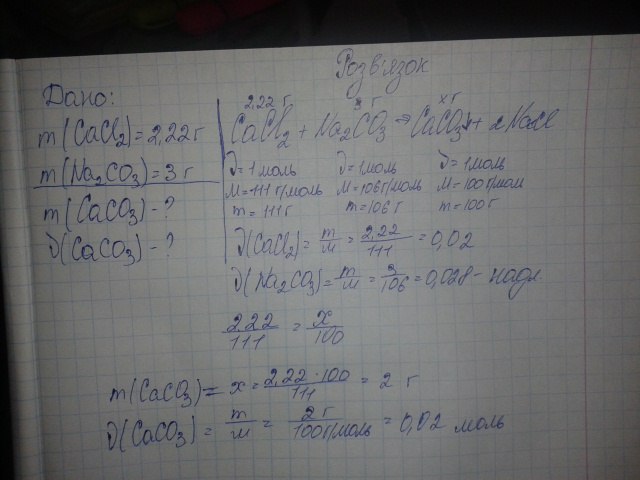 Розв'язок
Дано:
m(CaCl₂)=2,22г
m(Na₂CO₃)=3 г
m(CaCO₃)-?
ν(CaCO₃)-?
2,22 г 3 г x г
CaCl₂ + Na₂CO₃ → CaCO₃↓ + 2NaCl
ν=1моль ν=1моль ν=1моль
M=111 г/моль M=106г/моль M=100г/моль
m=111г m=106 г m=100г
ν(CaCl₂)= m/M = 2,22/111 = 0,02
ν(Na₂CO₃)= m/M = 3/106 = 0,028 - надл
2,22/111 = x/100
m(CaCO₃)= x = 2,22·100/111 = 2 г
ν(CaCO₃) = m/M = 2г/100г/моль = 0,02 моль